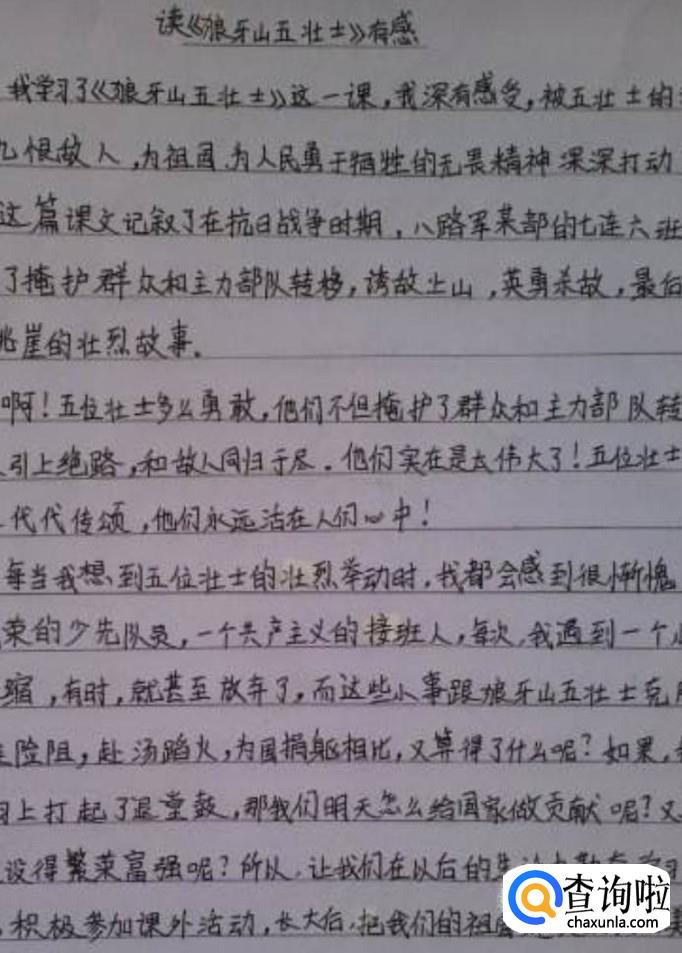 读《狼牙山五壮士》有感
我学习了《狼牙山五壮士》这一课,我深有感受,被五壮士的
仇恨敌人,为祖国、为人民勇于牺牲的无畏精神深深打动
这篇课文记叙了在抗日战争时期,八路军某部的七连六班
了掩护群众和主力部队转移,诱敌上山,英勇杀敌,最后
跳崖的壮烈故事。
啊!五位壮士多么勇敢,他们不但掩护了群众和主力部队转
引上绝路,和敌人同归于尽。他们实在是太伟大了!五位壮士
代代传颂,他们永远活在人们心中!
每当我想到五位壮士的壮烈举动时,我都会感到很惭愧
荣的少先队员,一个共产主义的接班人,每次,我遇到一个
缩,有时,就甚至放弃了,而这些小事跟狼牙山五壮士克
险阻,赴汤蹈火,为国捐躯相比,又算得了什么呢?如果,
上打起了退堂鼓,那我们明天怎么给国家做贡献呢?又
设得繁荣富强呢?所以,让我们在以后的
积极参加课外活动,长大后,把我们的祖
查询啦
chaxunla.com